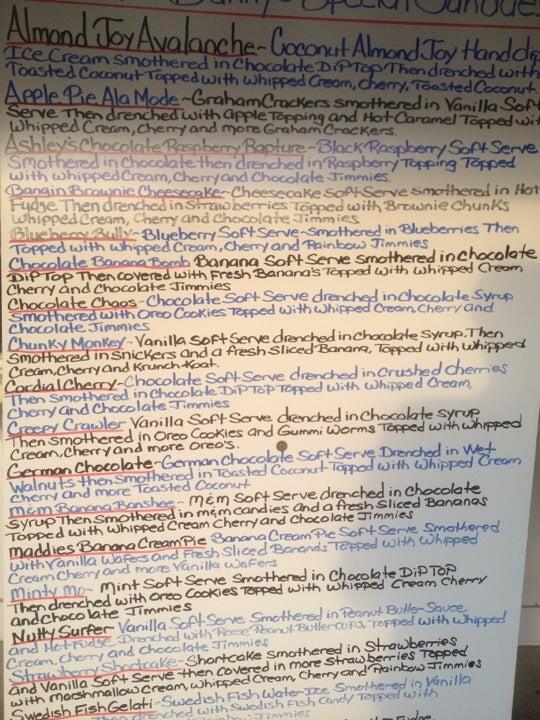 Special Sundaes
Almond Joy Avalanche~ Coconut Almond Joy Hand dip
Ice Cream smothered in Chocolate Dip Top Then drenched with
Toasted Coconut Topped with Whipped Cream, Cherry, Toasted Coconut.
Apple Pie Ala Mode ~Graham Crackers smothered in Vanilla Soft
Serve Then drenched with Apple Topping and Hot Caramel Topped wit
Whipped Cream, Cherry and more Graham Crackers.
Ashley's Chocolate Raspberry Rapture~Black Raspberry Soft Serve
Smothered in Chocolate then drenched in Raspberry Topping Topped
with Whipped Cream, Cherry and Chocolate Jimmies.
Bangin Brownie Cheesecake~Cheesecake Soft Serve smothered in Hot
Fudge Then drenched in Strawberries Topped with Brownie Chunks
Whipped Cream, Cherry and Chocolate Jimmies
Blueberry Bully~ Blueberry Soft Serve~Smothered in Blueberries Then
Topped with Whipped Cream, Cherry and Rainbow Jimmies
Chocolate Banana Bomb Banana Soft Serve smothered in chocolate
Dip Top Then covered with Fresh Banana's Topped with Whipped Cream
Cherry and Chocolate Jimmies
Chocolate Chaos~Chocolate Soft Serve drenched in Chocolate Syrup
Smothered with Oreo Cookies Topped with Whipped Cream, Cherry and
Chocolate Jimmies
Chunky Monkey~Vanilla Soft Serve drenched in chocolate Syrup. Then
Smothered in Snickers and a fresh Sliced Banana, Topped with Whipped
Cream, Cherry and Krunch Koat.
Cordial Cherry~Chocolate Soft Serve drenched in Crushed Cherries
Then Smothered in Chocolate Dip Top Topped with Whipped Cream,
Cherry and Chocolate Jimmies
Creepy Crawler Vanilla Soft Serve drenched in Chocolate Syrup
Then smothered in Oreo Cookies and Gummi Worms Topped with Whipped
Cream, Cherry and more Oreo's.
German Chocolate~German Chocolate Soft Serve Drenched in Wet
Walnuts then Smothered in Toasted Coconut Topped with Whipped Cream
Cherry and more Toasted Coconut
M&M Banana Banshee~ M&M Soft Serve drenched in Chocolate
Syrup Then Smothered in m&m candies and a fresh Sliced Bananas
Topped with Whipped Cream Cherry and Chocolate Jimmies
Maddies Banana Cream Pie Banana Cream Pie Soft Serve Smothered
with Vanilla Wafers and Fresh Sliced Bananas Topped with Whipped
Cream Cherry and more Vanilla Wafers
Minty Mo~ Mint Soft Serve Smothered in Chocolate Dip Top
Then drenched with Oreo Cookies Topped with Whipped Cream Cherry
and Chocolate Jimmies
Nutty Surfer Vanilla Soft Serve Smothered in Peanut Butter Sauce
and Hot Fudge, Drenched with Reese Peanut Butter Cups, Topped with Whipped
Cream, Cherry and Chocolate Jimmies
Strawberry Shortcake~Shortcake Smothered in Strawberries
and Vanilla Soft Serve then covered in more Strawberries Topped
with Marshmallow Cream, Whipped Cream, Cherry and Rainbow Jimmies
Swedish Fish Gelati~Swedish Fish Water Ice Smothered in Vanilla
Then drenched with Swedish Fish Candy Topped with